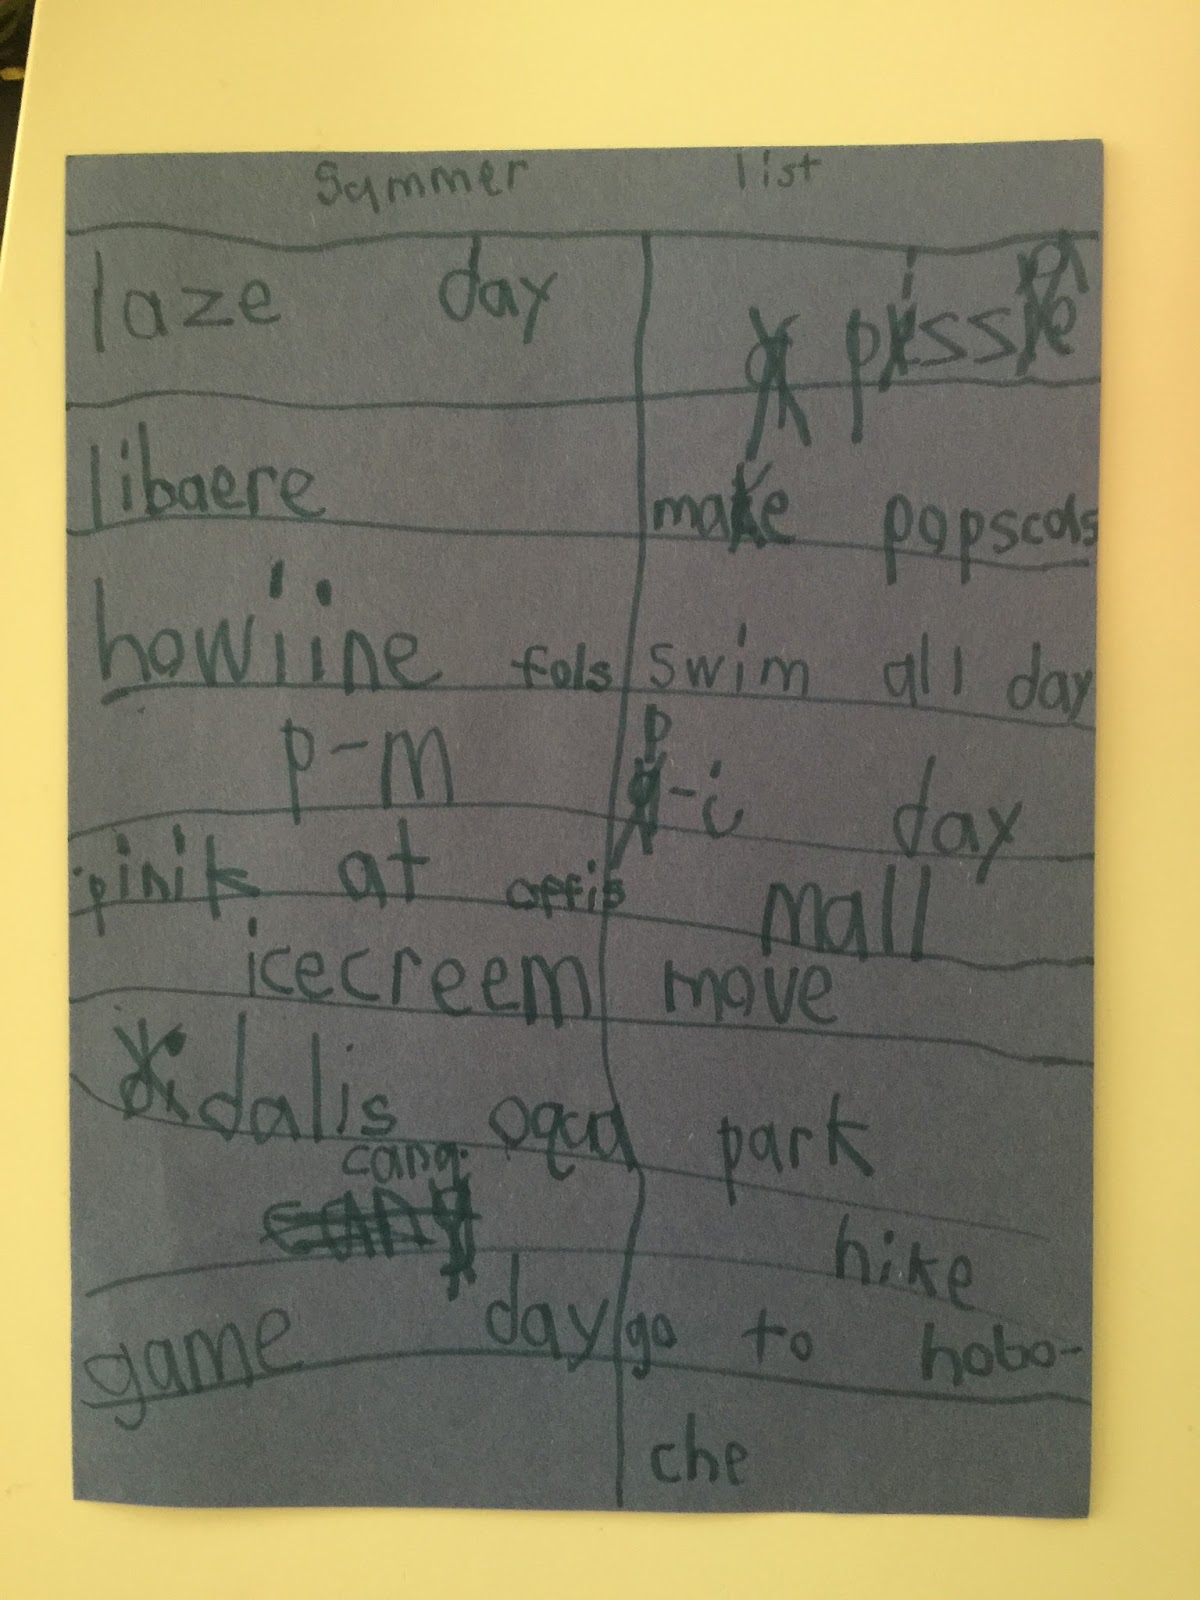 Summer list
laze day
libaere
howiine fols
p-m
pinik at offis
icecreem
dalis
cang
game day
make popscols
swim all day
p-i day
mall
move
park
hike
go to hobo-
che